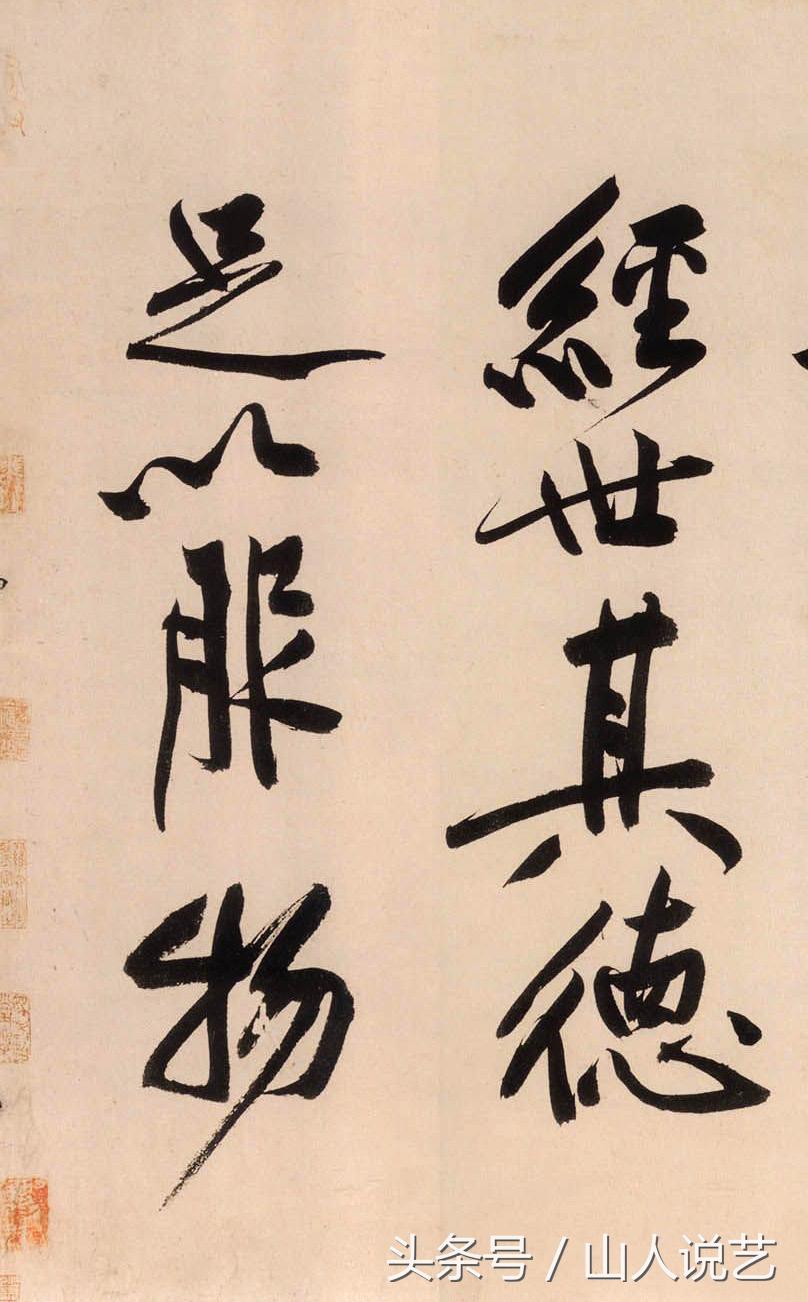 經世其德
足以服物
头条号 / 山人说艺